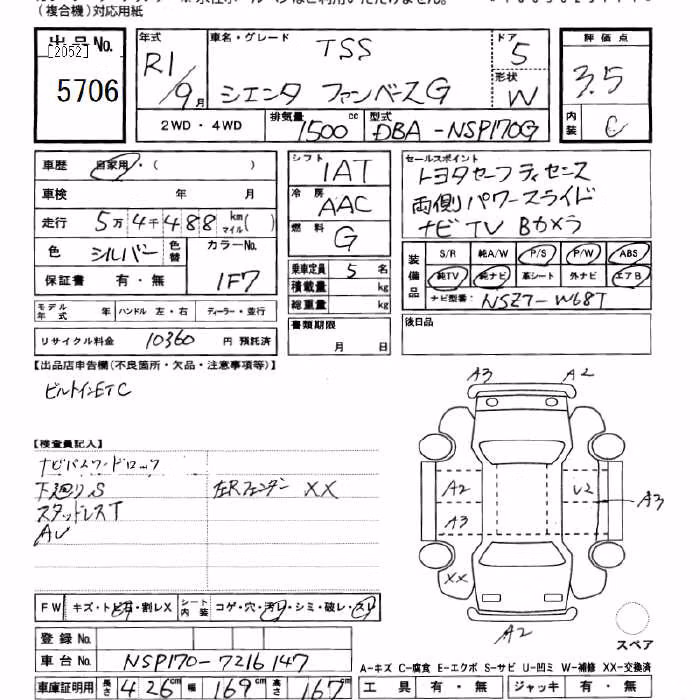 （複合機）対応用紙
出品No.
[2052]
5706
年式
R1/9月
車名・グレード
TSS
シエンタ ファンベースG
ドア
5
形状
W
評価点
3.5
内装
C
2WD・4WD
排気量
1500cc
型式
DBA-NSP170G
車歴 自家用・（ ）
車検 年 月
走行 5万4千488 km マイル( )
色 シルバー 色替
カラーNo.
1F7
保証書 有・無
モデル年式 年 ハンドル 左・右 ディーラー・並行
リサイクル料金 10360 円 預託済
シフト
IAT
冷房
AAC
燃料
G
乗車定員 5名
積載量 kg
総重量 kg
書類期限
月 日
セールスポイント
トヨタセーフティセンス
両側パワースライド
ナビTV Bカメラ
装備品
S/R 純A/W P/S P/W ABS
純TV 純ナビ 革シート 外ナビ エアB
ナビ型番: NSZT-W68T
後日品
【出品店申告欄(不良箇所・欠品・注意事項等)】
ビルトインETC
【検査員記入】
ナビパスワードロック
下廻りS
左Rフェンダー XX
スタッドレスT
A3 A2
A2 U2 A3
A3
XX
A2
スペア
FW キズ・トビ石・割レX シート内装 コゲ・穴・汚レ・シミ・破レ・スレ
登録No.
車台No. NSP170-7216147
車庫証明用 長さ 426cm 幅 169cm 高さ 167cm
A-キズ C-腐食 E-エクボ S-サビ U-凹ミ W-補修 XX-交換済
工具 有・無 ジャッキ 有・無